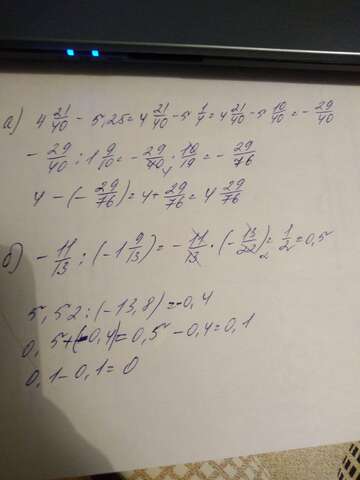 а) 4 21/40 - 5,25 = 4 21/40 - 5 1/4 = 4 21/40 - 5 10/40 = - 29/40
- 29/40 : 1 9/10 = - 29/40 · 10/19 = - 29/76
4 - (- 29/76) = 4 + 29/76 = 4 29/76
б) - 11/13 : (-1 9/13) = - 11/13 · (- 13/22) = 1/2 = 0,5
5,52 : (-13,8) = -0,4
0,5 + (-0,4) = 0,5 - 0,4 = 0,1
0,1 - 0,1 = 0